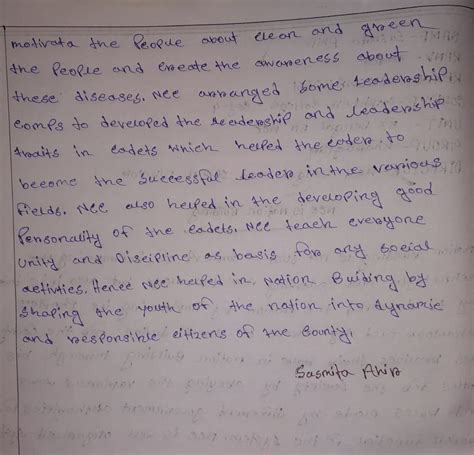 motivata the People about clean and green
the People and create the awareness about
these diseases. Ncc arranged some Leadership
comps to developed the Leadership and leadership
traits in cadets which helped the cader to
become the Successful Leader in the various
Fields. Ncc also helped in the developing good
Personality of the cadets. Ncc teach everyone
Unity and Discipline as basis for any social
activities. Hence Ncc helped in Nation Buiding by
shaping the youth of the nation into dynamic
and responsible citizens of the County.
Sasmita Ahir